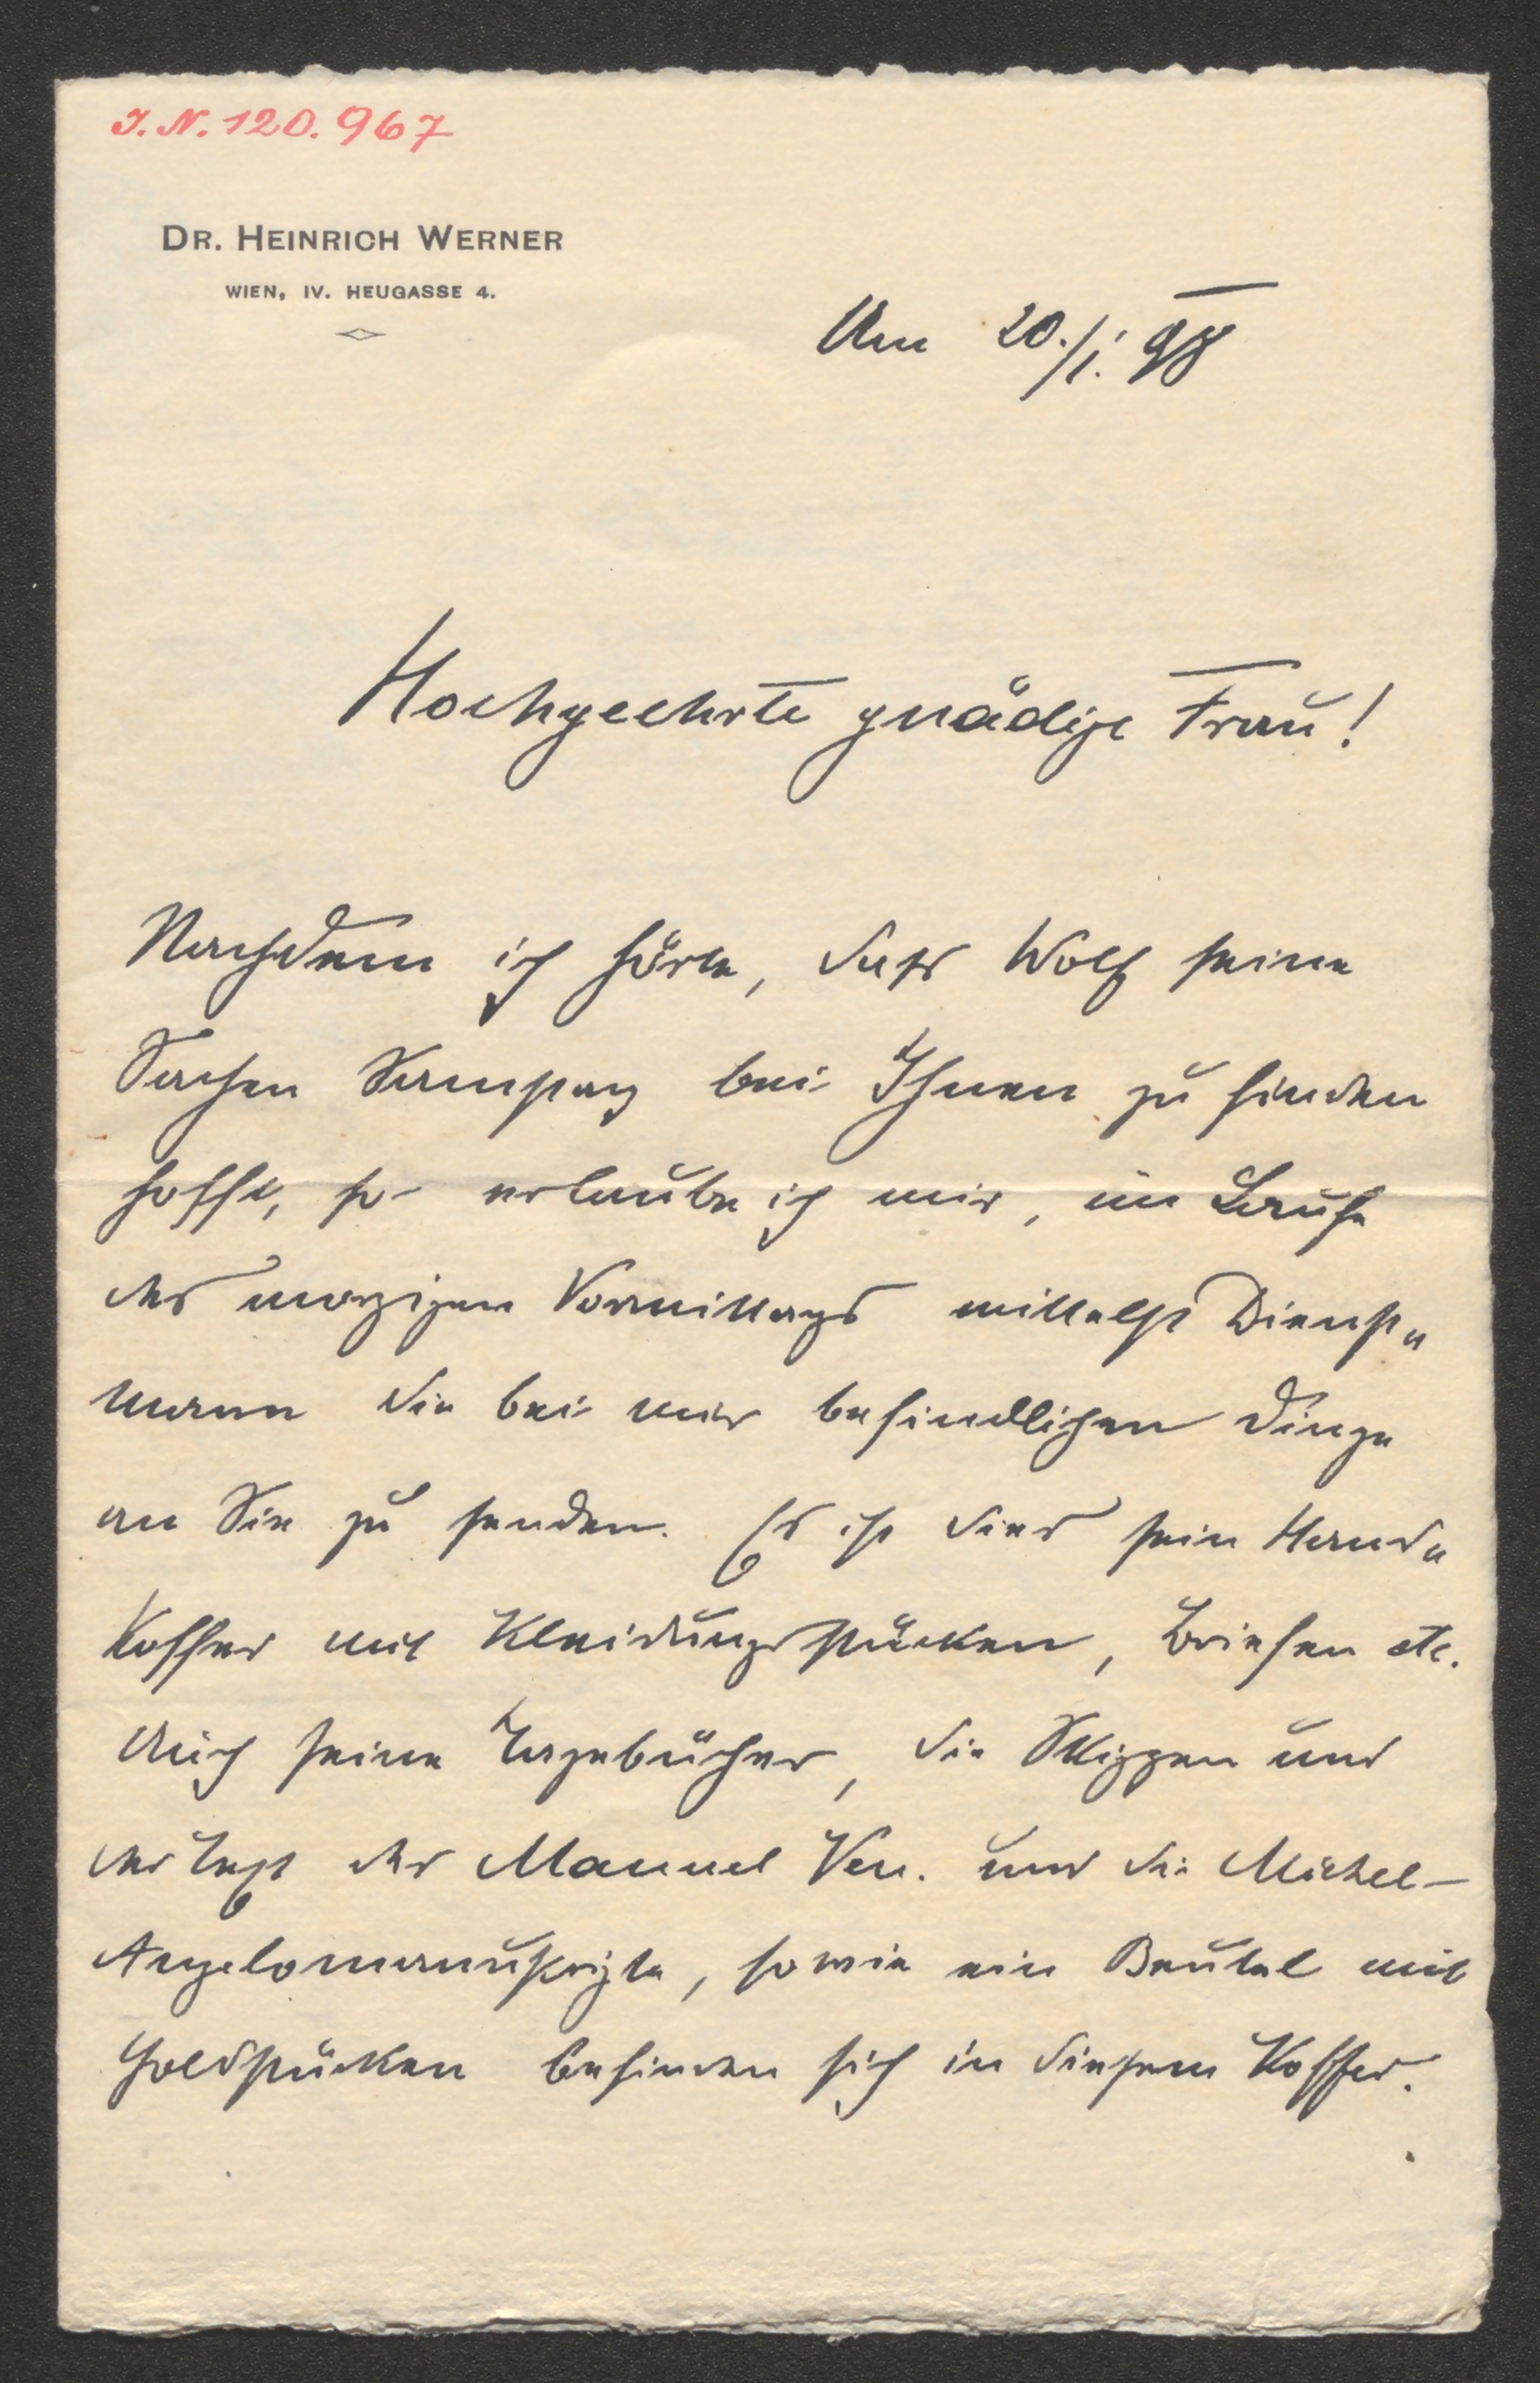 I. N. 120.967
DR. HEINRICH WERNER
WIEN, IV. HEUGASSE 4.
Am 20./I. 98
Hochgeehrte gnädige Frau!
Nachdem ich hörte, dass Wolf seine
Sachen Samstag bei Ihnen zu finden
hofft, so erlaube ich mir, im Laufe
des morgigen Vormittags mittelst Dienst„
mann die bei mir befindlichen Dinge
an Sie zu senden. Es ist dies sein Hand„
koffer mit Kleidungsstücken, Briefen etc.
Auch seine Tagebücher, die Skizzen und
der Text des Manuel Ven. und die Michel-
Angelomanuskripte, sowie ein Beutel mit
Goldstücken befinden sich in diesem Koffer.